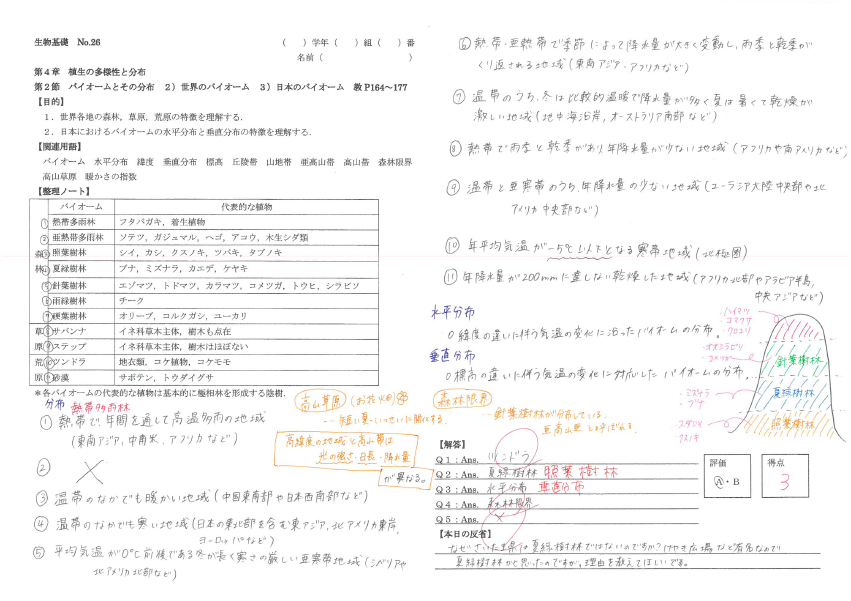 生物基礎 No.26
(　)学年(　)組(　)番
名前(　)
第4章 植生の多様性と分布
第2節 バイオームとその分布 2)世界のバイオーム 3)日本のバイオーム 教P164～177
【目的】
1．世界各地の森林，草原，荒原の特徴を理解する．
2．日本におけるバイオームの水平分布と垂直分布の特徴を理解する．
【関連用語】
バイオーム 水平分布 緯度 垂直分布 標高 丘陵帯 山地帯 亜高山帯 高山帯 森林限界
高山草原 暖かさの指数
【整理ノート】
バイオーム 代表的な植物
① 熱帯多雨林 フタバガキ，着生植物
② 亜熱帯多雨林 ソテツ，ガジュマル，ヘゴ，アコウ，木生シダ類
森 ③ 照葉樹林 シイ，カシ，クスノキ，ツバキ，タブノキ
林 ④ 夏緑樹林 ブナ，ミズナラ，カエデ，ケヤキ
⑤ 針葉樹林 エゾマツ，トドマツ，カラマツ，コメツガ，トウヒ，シラビソ
⑥ 雨緑樹林 チーク
⑦ 硬葉樹林 オリーブ，コルクガシ，ユーカリ
草 ⑧ サバンナ イネ科草本主体，樹木も点在
原 ⑨ ステップ イネ科草本主体，樹木はほぼない
荒 ⑩ ツンドラ 地衣類，コケ植物，コケモモ
原 ⑪ 砂漠 サボテン，トウダイグサ
＊各バイオームの代表的な植物は基本的に極相林を形成する陰樹．
分布 熱帯多雨林
① 熱帯で，年間を通して高温多雨の地域
(東南アジア，中南米，アフリカなど)
②
③ 温帯のなかでも暖かい地域(中国東南部や日本西南部など)
④ 温帯のなかでも寒い地域(日本の東北部を含む東アジア，北アメリカ東岸，
ヨーロッパなど)
⑤ 平均気温が0℃前後である冬が長く寒さの厳しい亜寒帯地域(シベリアや
北アメリカ北部など)
高山草原(お花畑)
… 短い夏にいっせいに開花する
高緯度の地域と高山帯は
光の強さ・日長・降水量
が異なる。
森林限界
… 針葉樹林が分布している
亜高山帯とよばれる
⑥ 熱帯・亜熱帯で季節によって降水量が大きく変動し，雨季と乾季が
くり返される地域(東南アジア，アフリカなど)
⑦ 温帯のうち，冬は比較的温暖で降水量が多く夏は暑くて乾燥が
激しい地域(地中海沿岸，オーストラリア南部など)
⑧ 熱帯で雨季と乾季があり年降水量が少ない地域(アフリカや南アメリカなど)
⑨ 温帯と亜寒帯のうち，年降水量の少ない地域(ユーラシア大陸中央部や北
アメリカ中央部など)
⑩ 年平均気温が-5℃以下となる寒帯地域(北極圏)
⑪ 年降水量が200mmに達しない乾燥した地域(アフリカ北部やアラビア半島，
中央アジアなど)
水平分布
○緯度の違いに伴う気温の変化に沿ったバイオームの分布．
垂直分布
○標高の違いに伴う気温の変化に対応したバイオームの分布．
・ハイマツ
・コマクサ
・クロユリ
・オオシラビソ
・コメツガ
針葉樹林
・ミズナラ
ブナ
夏緑樹林
スダジイ
クスノキ
照葉樹林
【解答】
Q1：Ans. ツンドラ
Q2：Ans. 夏緑樹林 照葉樹林
Q3：Ans. 水平分布 垂直分布
Q4：Ans. 森林限界
Q5：Ans.
評価
A・B
得点
3
【本日の反省】
なぜさいたま県は夏緑樹林ではないのですか？けやき広場など有名なので
夏緑樹林かと思ったのですが，理由を教えてほしいです。